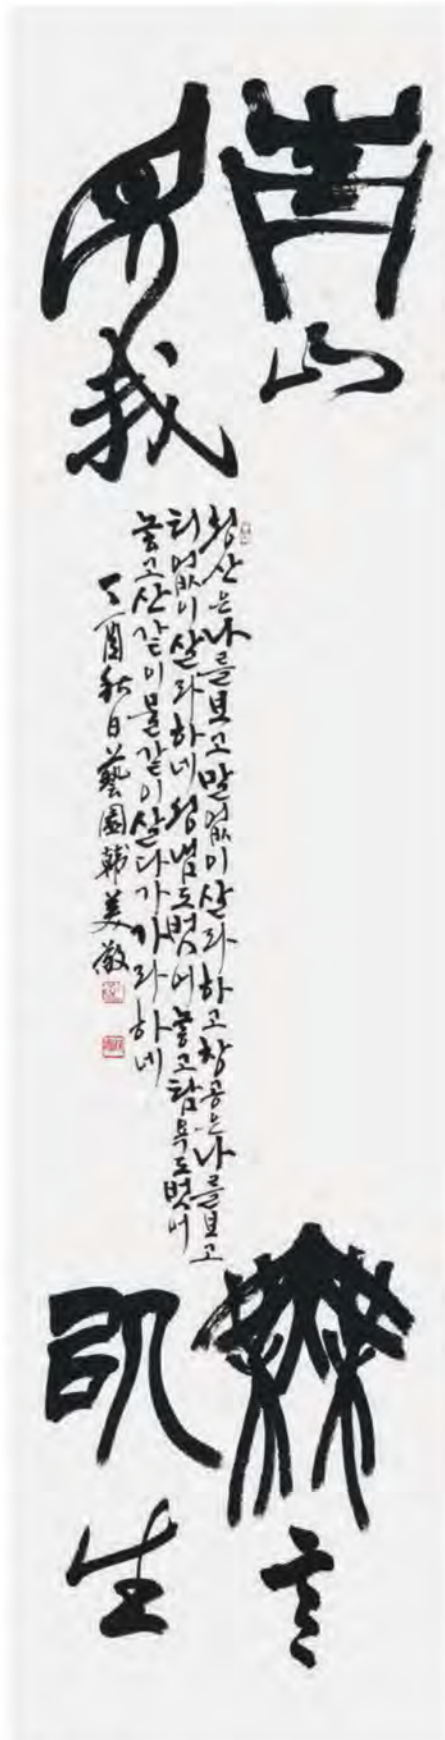 靑山
我
無言
以生
청산은나를보고말없이살라하고창공은나를보고
티없이살라하네성냄도벗어놓고탐욕도벗어
놓고산같이물같이살다가가라하네
丁酉秋日藝園韓美敬